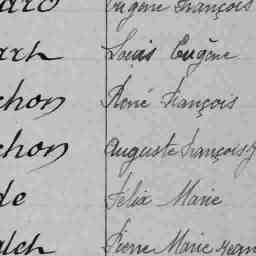 Eugène François
Louis Eugène
chon René François
chon Auguste François
de Félix Marie
Pierre Marie Jean